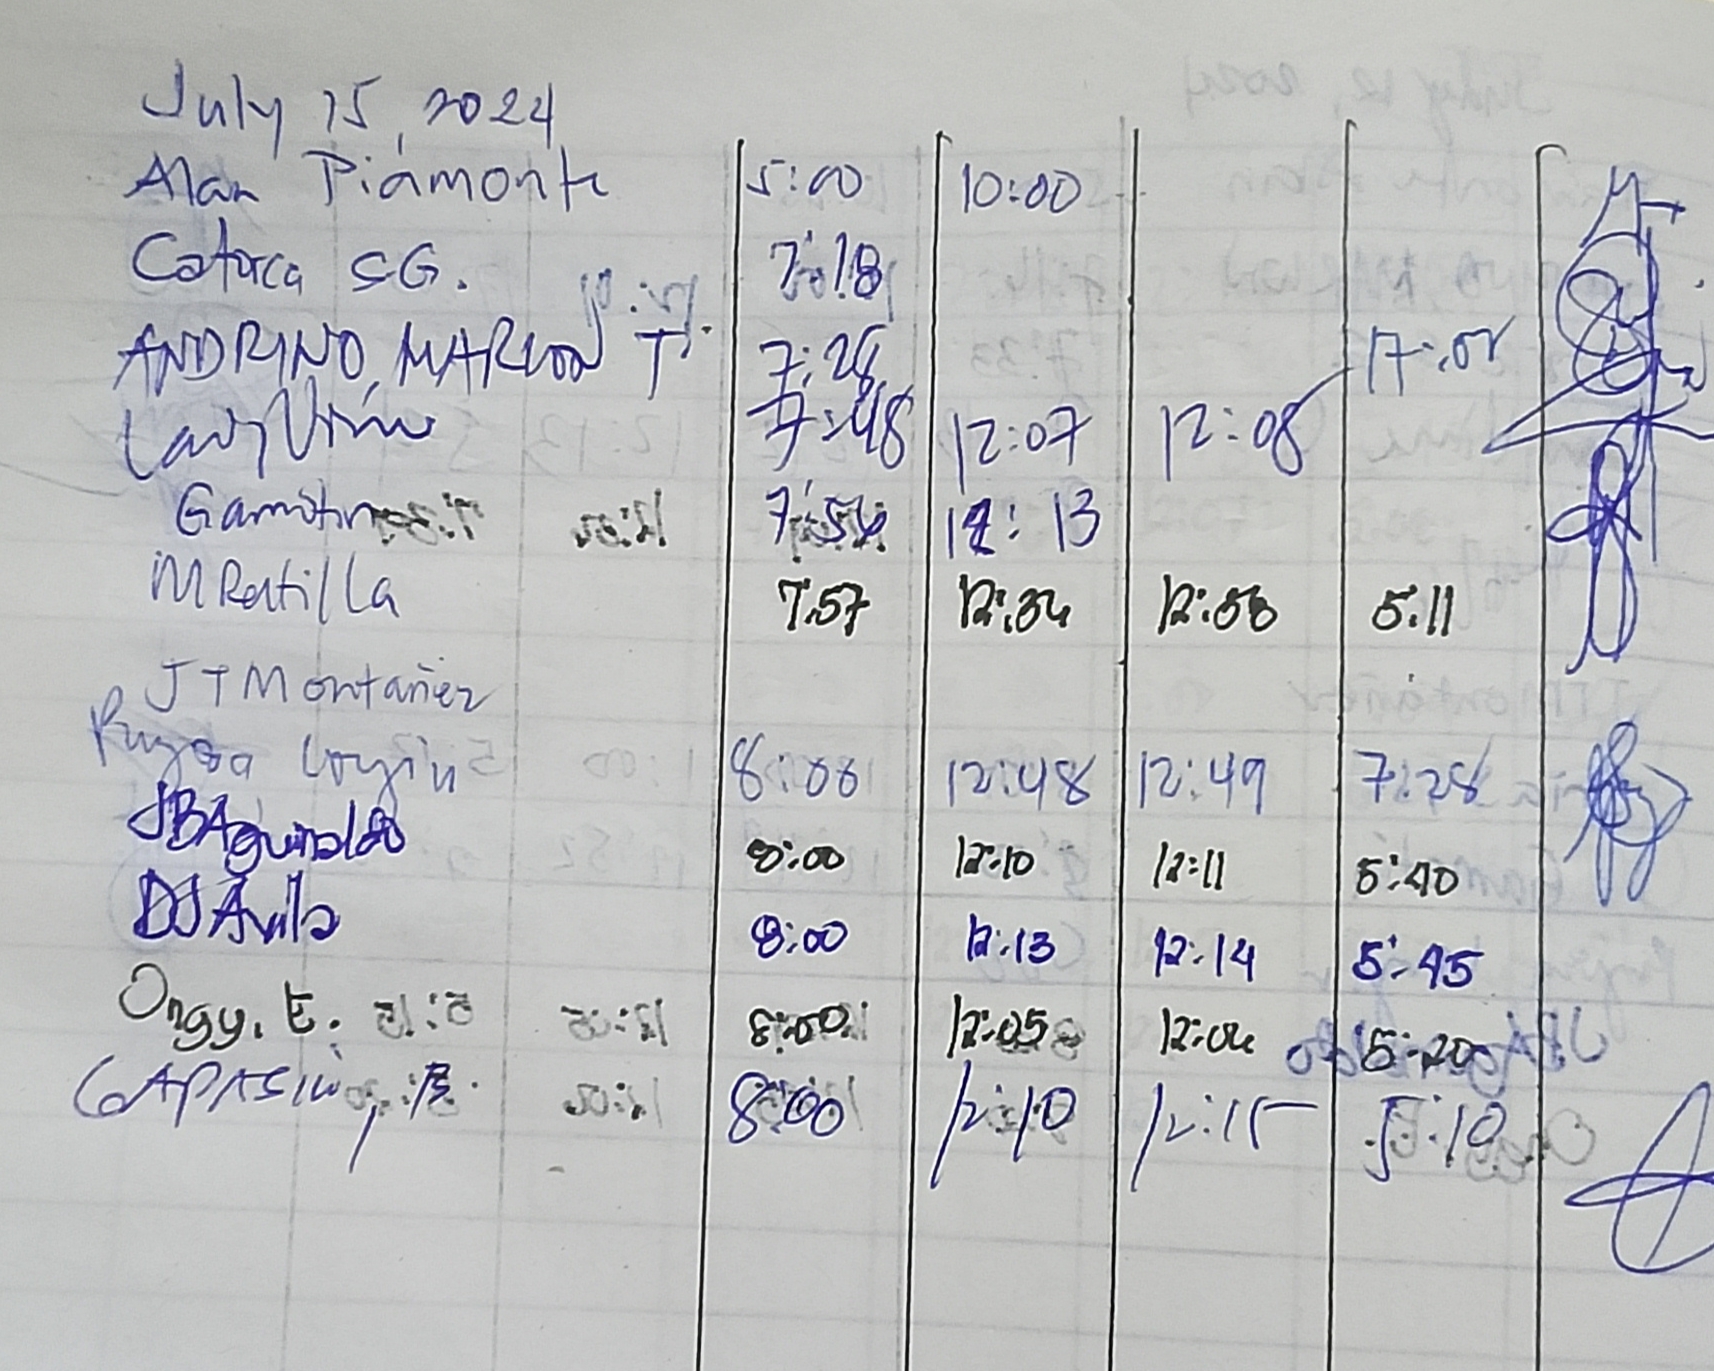 July 15, 2024
Alan Piamonte 5:00 10:00
Catorca S.G. 7:18
ANDRINO, MARLON T. 7:28 17:08
Lady 7:48 12:07 12:08
Gamotin 7:54 12:13
M Ratilla 7:57 12:34 12:58 5:11
J T Montañer
8:00 12:48 12:49 7:28
JBAguinaldo 8:00 12:10 12:11 5:40
DJ Avila 8:00 12:13 12:14 5:45
Ongy. E. 8:00 12:05 12:06 5:20
GAPASIN, B. 8:00 12:10 12:15 5:10